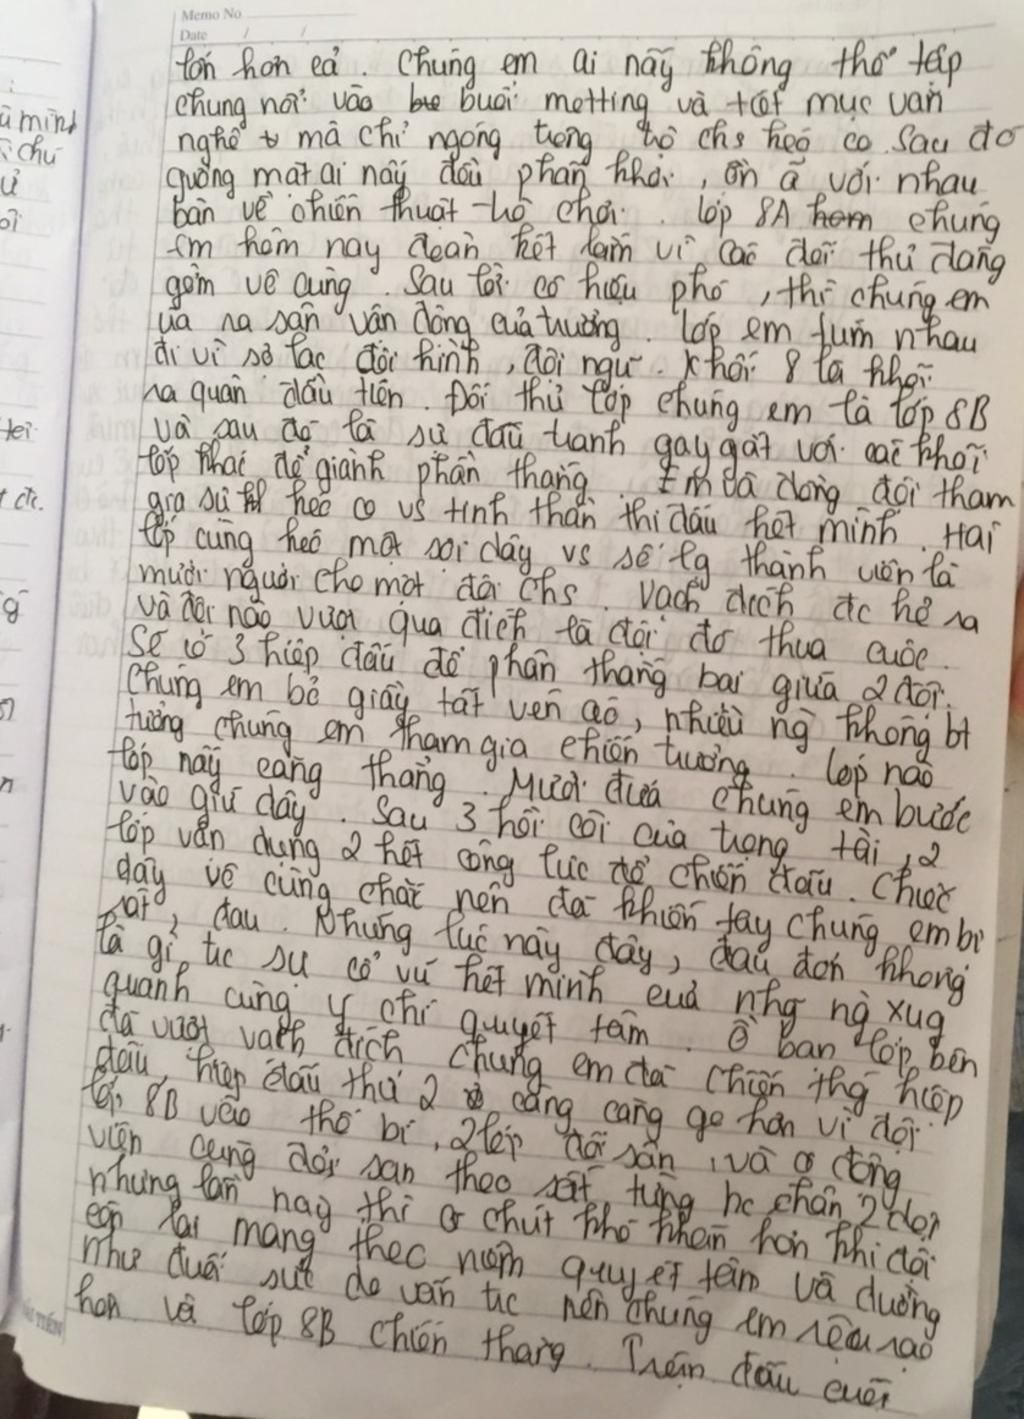 Memo No
Date / /
lớn hơn cả. Chúng em ai nấy không thể tập
chung nổi vào buổi metting và tiết mục văn
nghệ mà chỉ ngóng trông trò chs kéo co. Sau đó
guồng mặt ai nấy đều phấn khởi, ồn ã với nhau
bàn về chiến thuật trò chơi. Lớp 8A chúng
em hôm nay đoàn kết lắm vì các đối thủ đáng
gờm vô cùng. Sau lời cô hiệu phó, thì chúng em
ùa ra sân vận động của trường. Lớp em tụm nhau
đi vì sợ lạc đội hình, đội ngũ. Khối 8 là khối
ra quân đầu tiên. Đối thủ lớp chúng em là lớp 8B
và sau đó là sự đấu tranh gay gắt với các khối
lớp khác để giành phần thắng. Em và đồng đội tham
gia sự kéo co vs tinh thần thi đấu hết mình. Hai
lớp cùng kéo một sợi dây vs số lg thành viên là
mười người cho một đội chs. Vạch đích đc kẻ ra
và đội nào vượt qua đích là đội đó thua cuộc.
Sẽ có 3 hiệp đấu để phân thắng bại giữa 2 đội.
Chúng em bỏ giầy tất vén áo, nhiều ng không bt
tưởng chúng em tham gia chiến trường. Lớp nào
lớp nấy căng thẳng. Mười đứa chúng em bước
vào giữ dây. Sau 3 hồi còi của trọng tài, 2
lớp vận dụng hết công lực để chiến đấu. Chiếc
dây vô cùng chắc nên đã khiến tay chúng em bị
rát, đau. Nhưng lúc này đây, đau đớn không
là gì, sự cổ vũ hết mình của nhg ng xug
quanh cùng ý chí quyết tâm. Ồ bạn lớp bên
đã vượt vạch đích chúng em đã chiến thg hiệp
đấu, hiệp đấu thứ 2 càng cang go hơn vì đội
lớp 8B vào thế bí, 2 lớp đổi sân, và cổ động
viên cũng đổi sân theo sát từng bc chân 2 đội
nhưng lần này thì có chút khó khăn hơn khi đội
còn lại mang theo niềm quyết tâm và dường
như đuối sức do vận tốc nên chúng em rệu rạo
hơn và lớp 8B chiến thắng. Trận đấu cuối